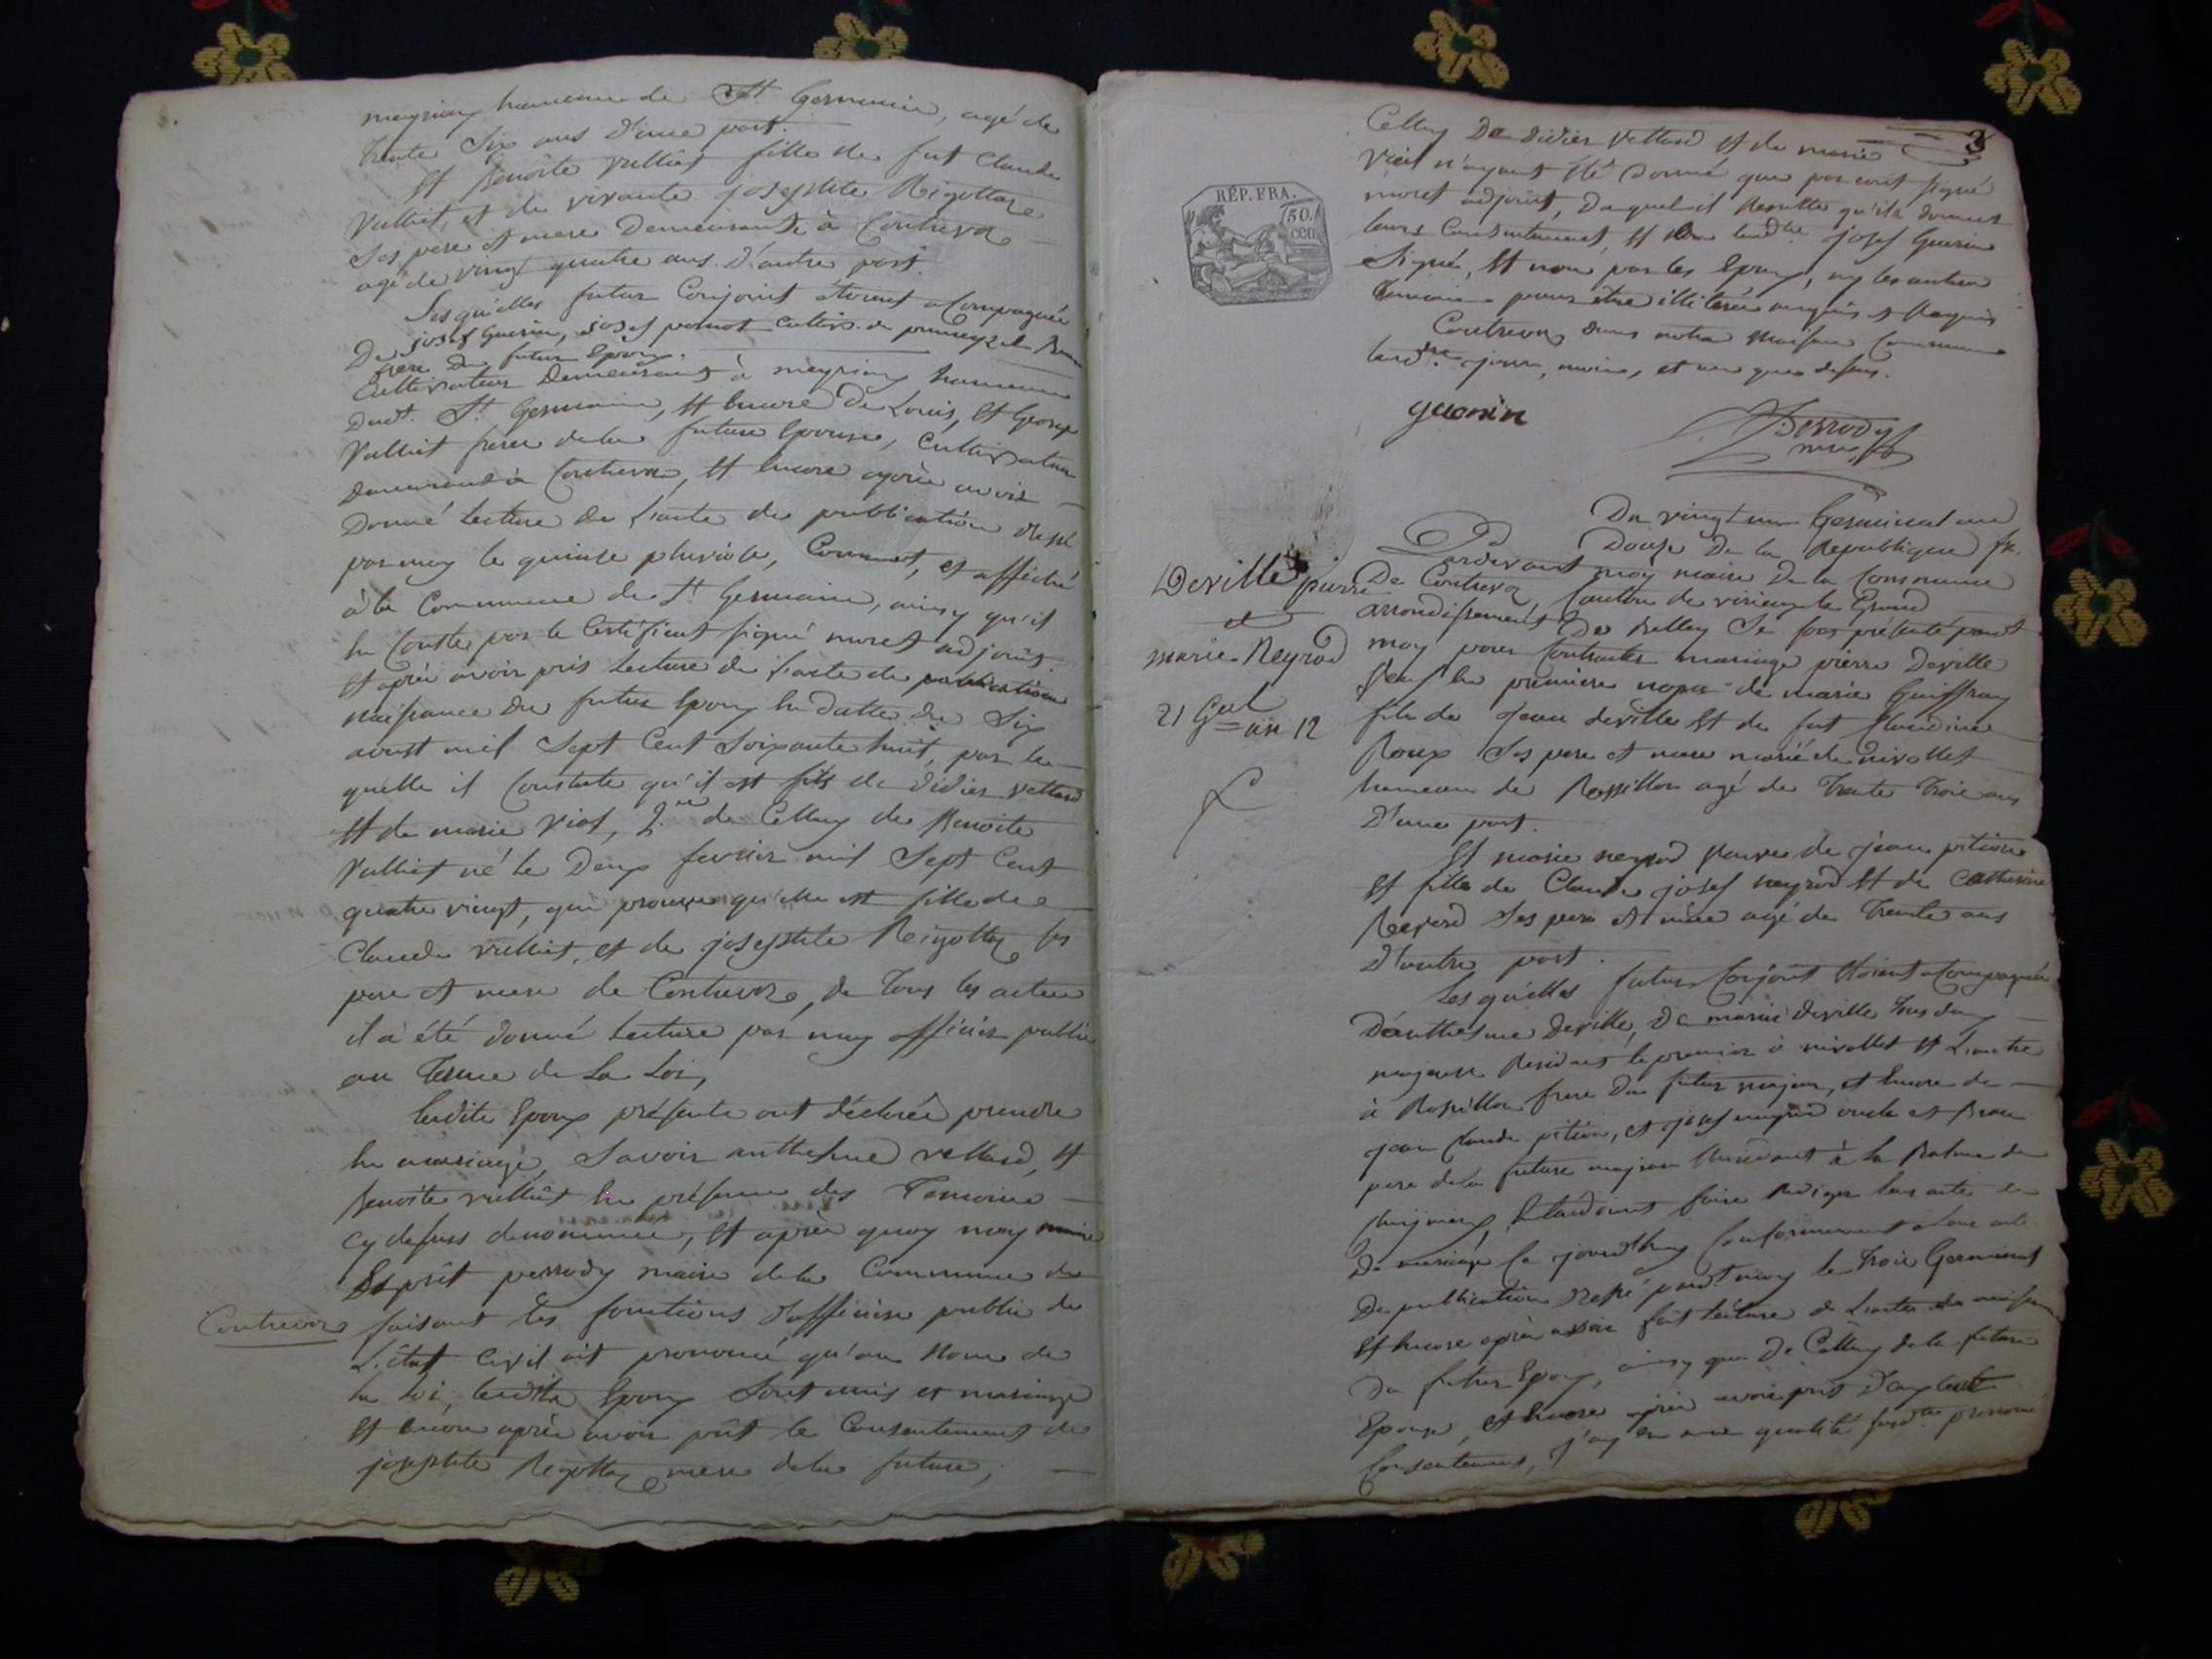 meyriay hameau de St Germain, agé de
trente six ans d'une part.
Et Benoîte Vulliet fille de fut Claude
Vulliet, et de vivante josephte Rigottaz
Ses pere et mere Demeurants à Contrevoz
agé de vingt quatre ans d'autre part.
Lesquelles futur Conjoint étoient acCompagnée
De josef Guerin, josef cultiv. de
frere du futur Epoux.
Cultivateur Demeurant à meyriay hameau
dudt. St Germain, Et Encore De Louis, Et George
Vulliet frere de la future Epouse, Cultivateur
demeurant à Contrevoz, Et Encore après avoir
Donné Lecture de L'acte de publication
par moy le quinse pluviôse, Et affiché
à la Commune de St Germain, ainsy qu'il
En Conste par le Certificat signé moret adjoint.
Et après avoir pris Lecture de L'acte de publication
naissance du futur Epoux En datte du Six
aoust mil Sept Cent Soixante huit, par la
quelle il Constate qu'il est fils de Didier Vettard
Et de marie Viot, 2. de Celluy de Benoite
Vulliet né le Deux fevrier mil Sept Cent
quatre vingt, qui prouve qu'elle est fille de
Claude Vulliet, et de josephte Rigottaz ses
pere et mere de Contrevoz, de Tous les actes
il a été donné Lecture par moy officier public
au Terme de La Loi,
Lesdits Epoux présents ont déclarée prendre
En mariage, Savoir anthelme vettard, Et
Benoîte vulliet En présence des Temoins
Cy dessus denommée, Et après quoy moy maire
Esprit perrody maire de la Commune de
Contrevoz faisant les fonctions d'officier public de
L'état Civil ait prononcé qu'au Nom de
la Loi, lesdits Epoux Sont unis en mariage
Et encore après avoir prit le Consentement de
josephte Rigottaz mere de la future;
3
Celluy De didier Vettard Et de marie
Viot n'ayant Eté Donné que par écrit signé
moret adjoint, Duquel il Resulte qu'ils donnent
leurs Consentement, Et josef Guerin
Signé, Et non par les Epoux, ny les autres
Temoins pour être illiterés enquis et Requis
Contrevoz dans notre Maison Commune
jour, mois, et an que dessus.
RÉP. FRA.
50.
cen.
guerin
Perrody
maire
Du vingt un Germinal an
Douse De la Republique fr.
Pardevant moy maire De la Commune
De Contrevoz Canton de virieux le Grand
arrondissement De Belley Se sont présenté pardt
moy pour Contracter mariage pierre Deville
veuf En premiere nopce de marie Guiffray
fils de Jean deville Et de fut Claudine
Roux Ses pere et mere marié de nivollet
hameau de Rossillon agé de Trente Trois ans
D'une part.
Deville pierre
et
marie Neyrod
21 Gal
an 12
Et marie neyrod veuve de jean pition
Et fille de Claude josef neyrod Et de Catherine
Reverd Ses pere et mère agé de Trente ans
D'autre part.
Lesquelles futur Conjoint Etoient aCompagnée
D'anthelme Deville, De marin deville tous deux
majeur Residant le premier à nivollet Et L'autre
à Rossillon frere Du futur majeur, et Encore de
jean Claude pition, et josef neyrod oncle et Beau
pere de la future majeur Residant à la Balme de
faire Rediger leur acte de
De mariage Ce jourd'huy Conformement à leur acte
De publication pardt moy le Trois Germinal
Et Encore après avoir fait Lecture de L'acte de naissance
Du futur Epoux, ainsy que De Celluy de la future
Epouse, et Encore après avoir prit
Consentement, j'ay En ma qualité prononcé